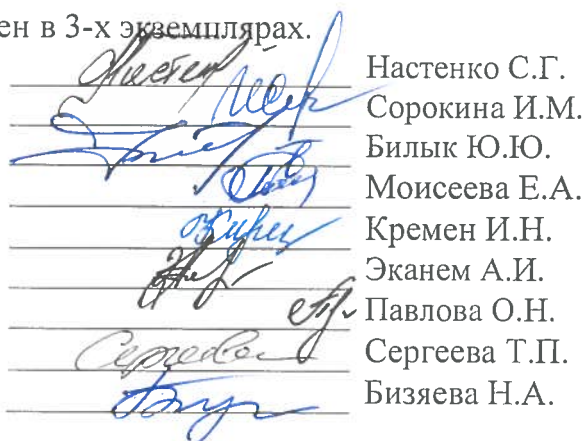 ен в 3-х экземплярах.
Настенко С.Г.
Сорокина И.М.
Билык Ю.Ю.
Моисеева Е.А.
Кремен И.Н.
Эканем А.И.
Павлова О.Н.
Сергеева Т.П.
Бизяева Н.А.